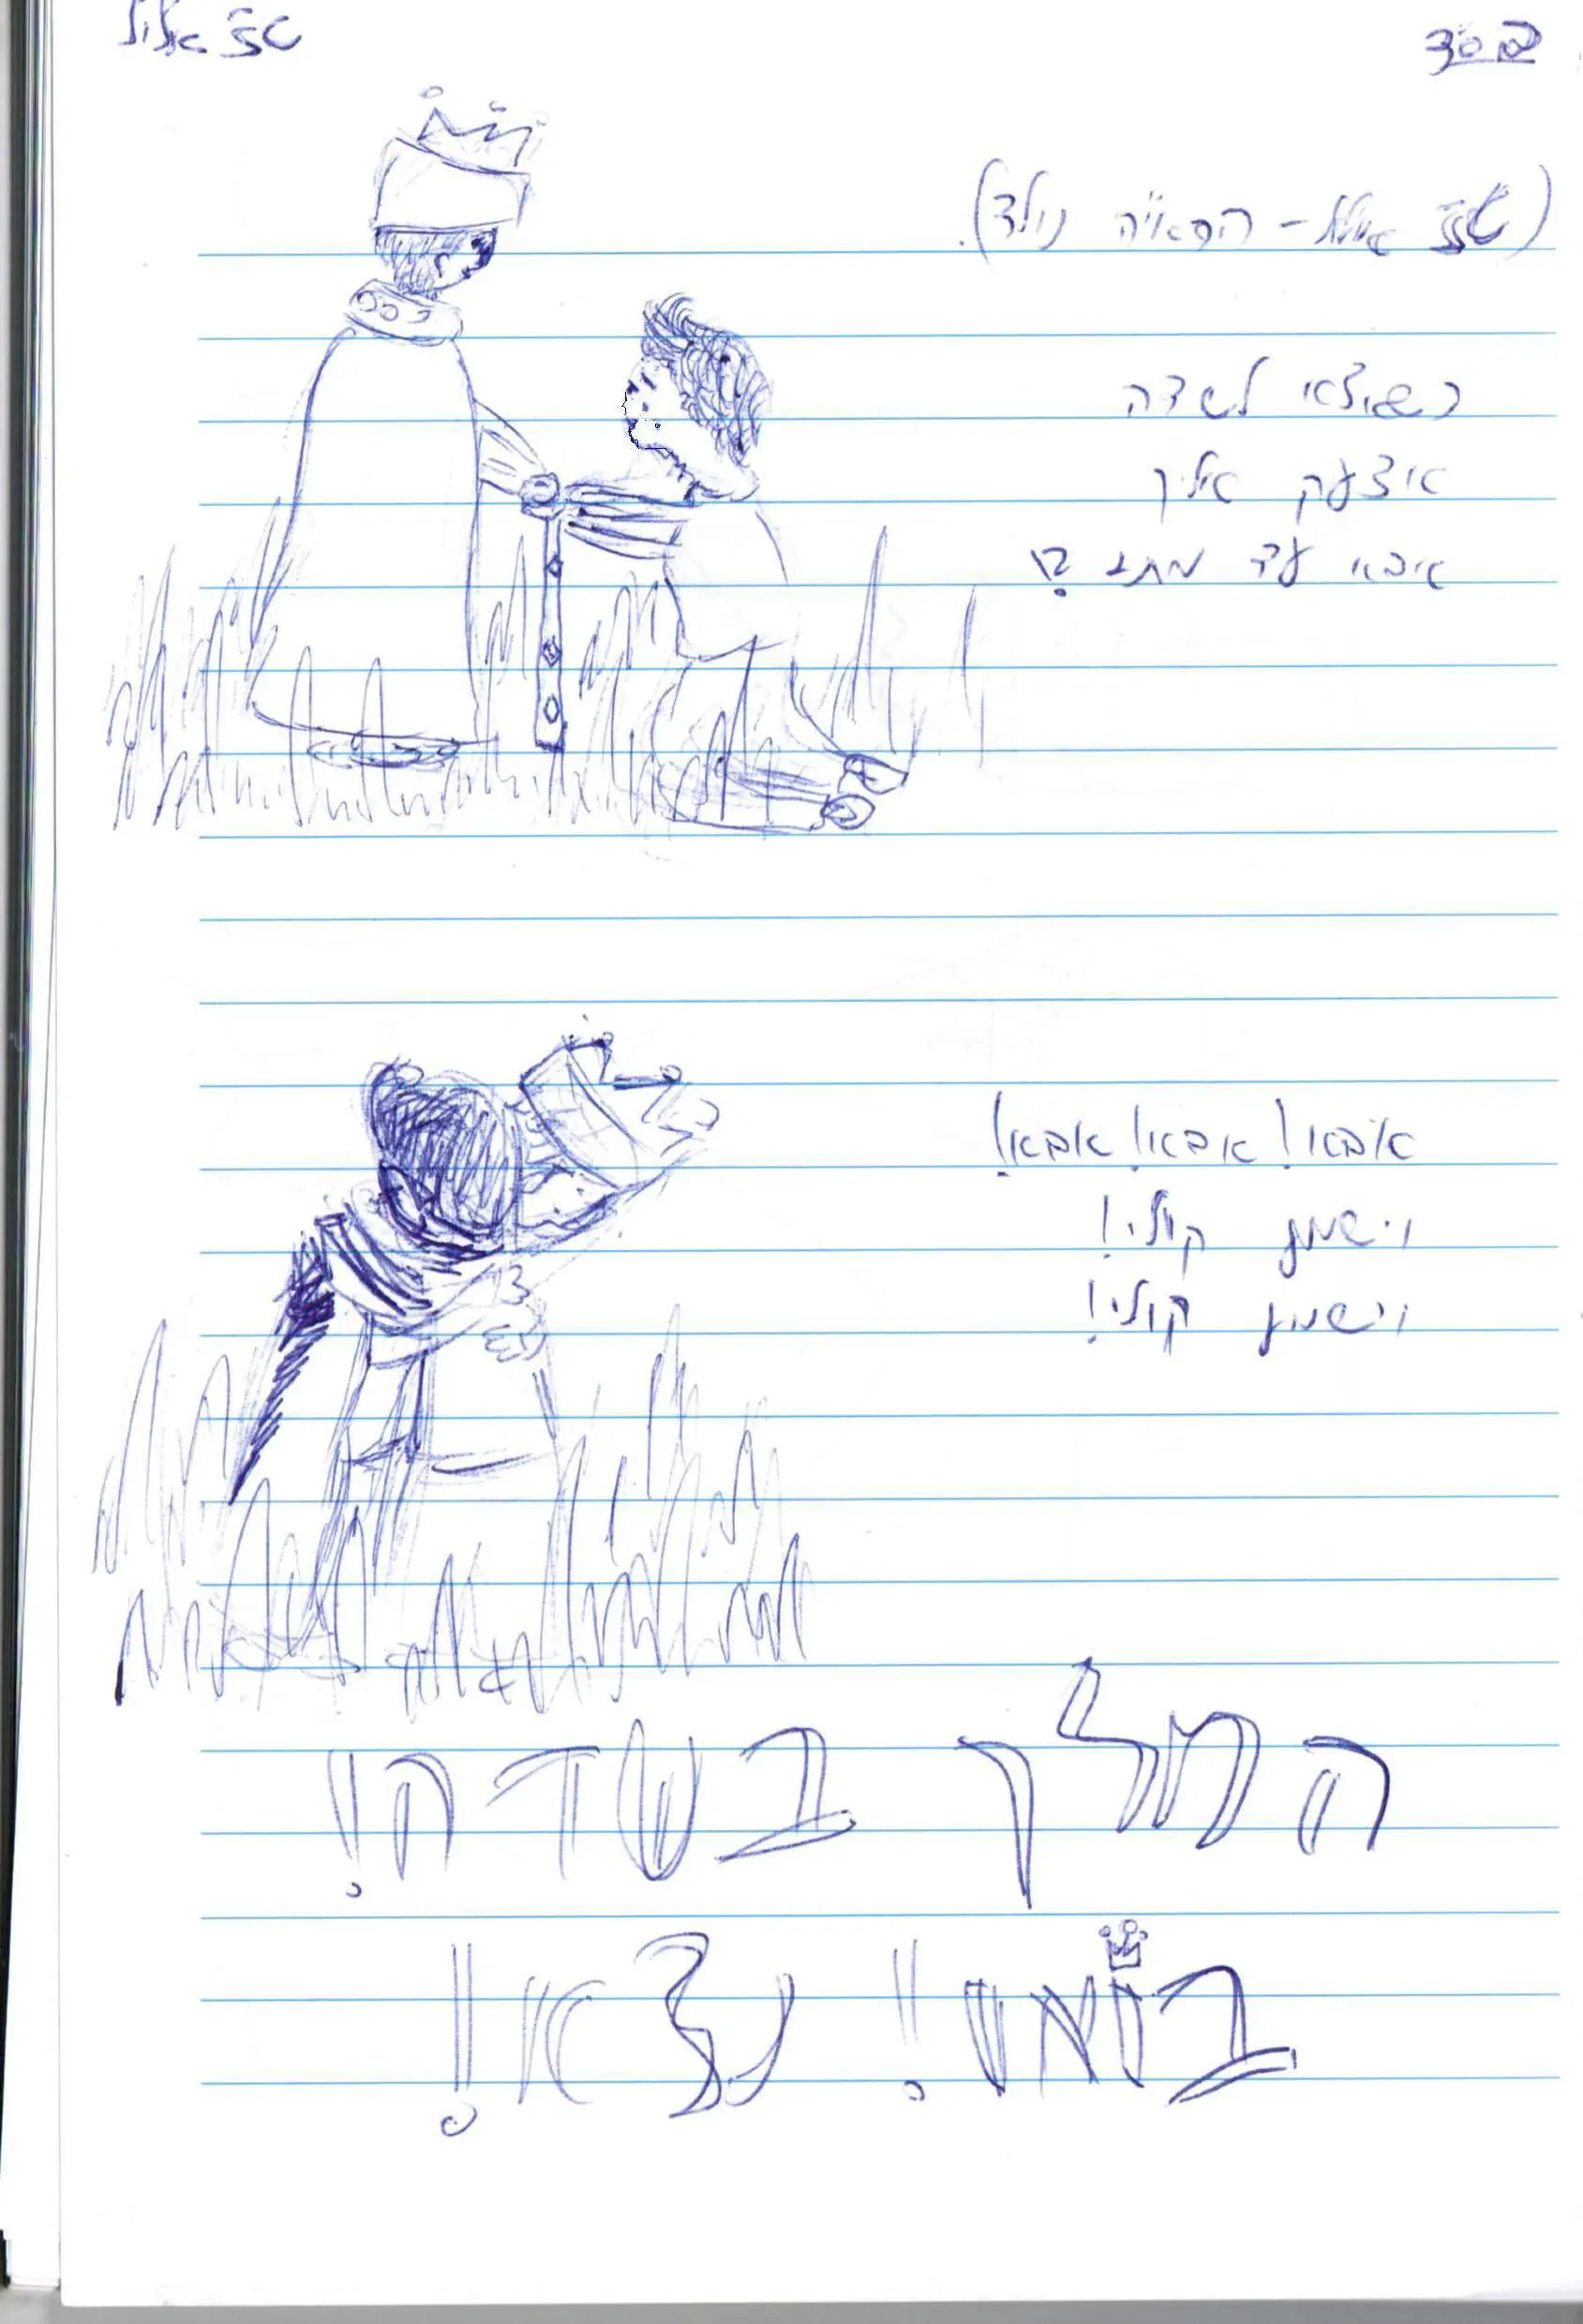 בס"ד
אלול
אלול - נולד).
כשאצא לשדה
אצעק אליך
אבא עד מתי ?!
אבא! אבא! אבא!
וישמע קולי!
וישמע קולי!
המלך בשדה!
בואו! נצא!